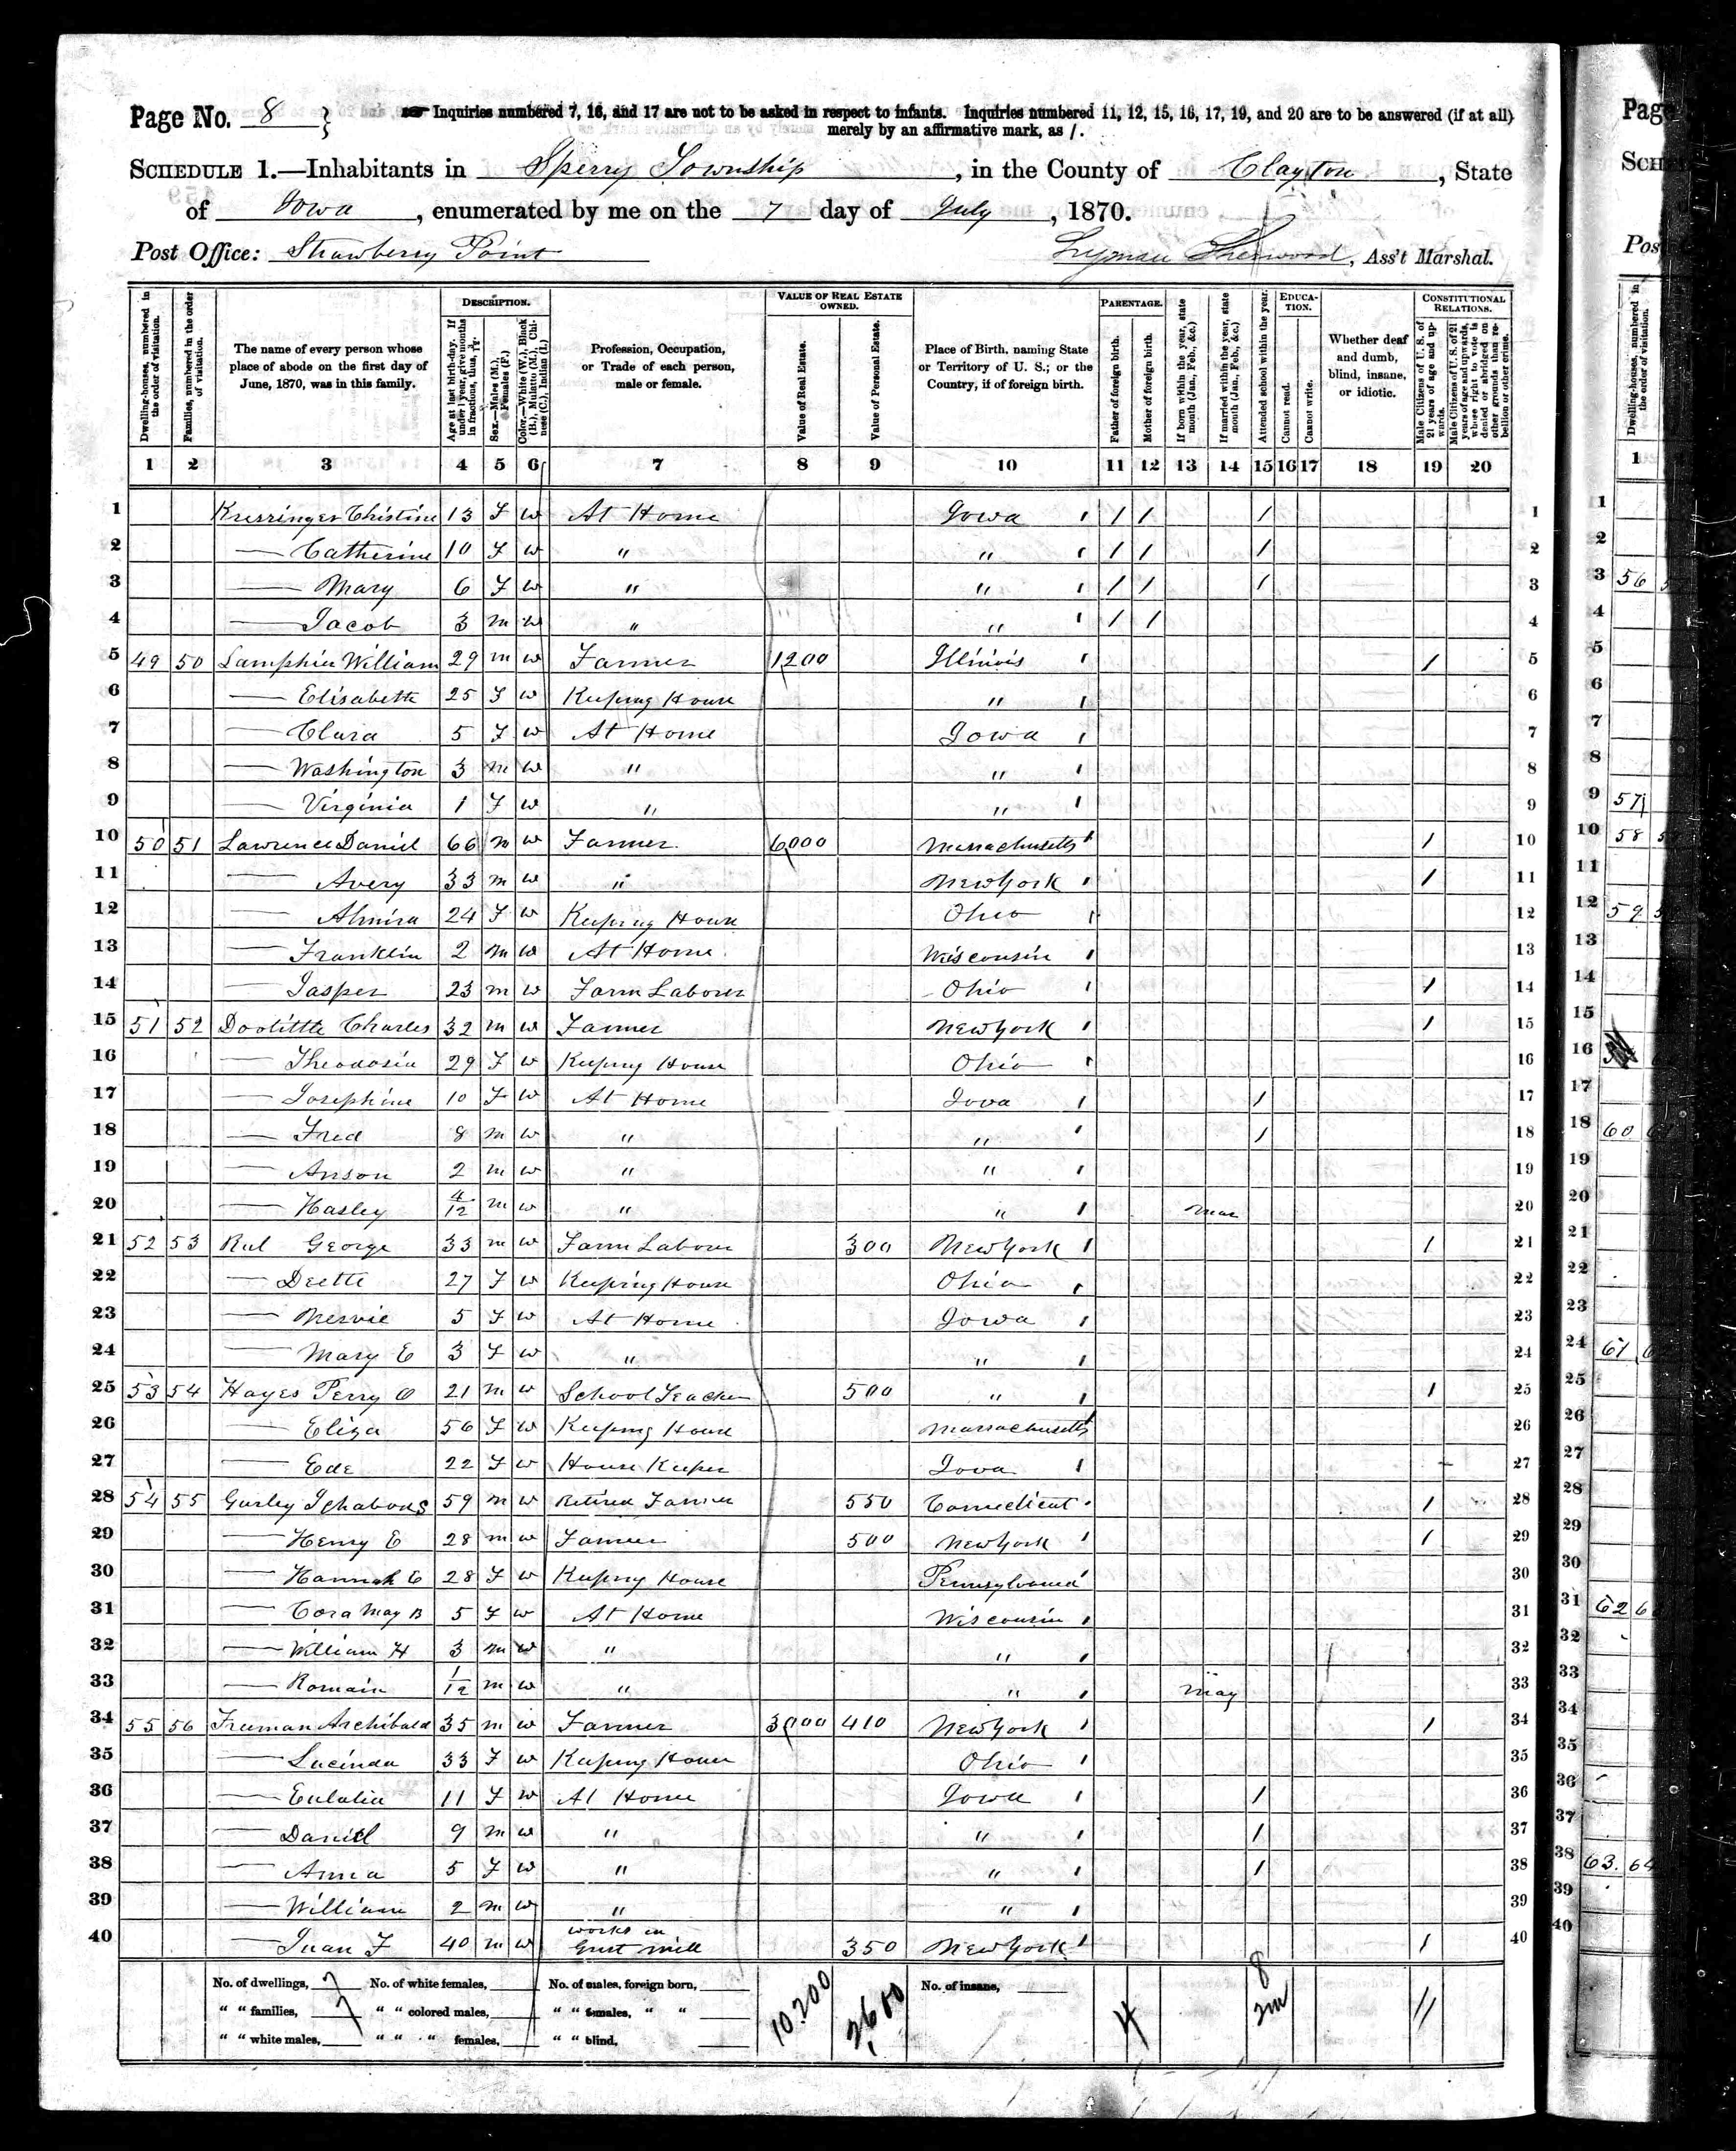 Page No. 8 } Inquiries numbered 7, 16, and 17 are not to be asked in respect to infants. Inquiries numbered 11, 12, 15, 16, 17, 19, and 20 are to be answered (if at all)
merely by an affirmative mark, as /.
SCHEDULE 1.—Inhabitants in Sperry Township, in the County of Clayton, State
of Iowa, enumerated by me on the 7 day of July, 1870.
Post Office: Strawberry Point Lyman Sherwood, Ass't Marshal.
Dwelling-houses, numbered in the order of visitation.
Families, numbered in the order of visitation.
The name of every person whose place of abode on the first day of June, 1870, was in this family.
DESCRIPTION.
Age at last birth-day. If under 1 year, give months in fractions, thus, 3/12.
Sex.—Males (M.), Females (F.)
Color.—White (W.), Black (B.), Mulatto (M.), Chinese (C.), Indian (I.)
Profession, Occupation, or Trade of each person, male or female.
VALUE OF REAL ESTATE OWNED.
Value of Real Estate.
Value of Personal Estate.
Place of Birth, naming State or Territory of U. S.; or the Country, if of foreign birth.
PARENTAGE.
Father of foreign birth.
Mother of foreign birth.
If born within the year, state month (Jan., Feb., &c.)
If married within the year, state month (Jan., Feb., &c.)
Attended school within the year.
EDUCATION.
Cannot read.
Cannot write.
Whether deaf and dumb, blind, insane, or idiotic.
CONSTITUTIONAL RELATIONS.
Male Citizens of U. S. of 21 years of age and upwards.
Male Citizens of U. S. of 21 years of age and upwards, whose right to vote is denied or abridged on other grounds than rebellion or other crime.
1 2 3 4 5 6 7 8 9 10 11 12 13 14 15 16 17 18 19 20
1 Christine 13 F W At Home Iowa / / / 1
2 — Catherine 10 F W " " / / / 2
3 — Mary 6 F W " " / / / 3
4 — Jacob 3 M W " " / / 4
5 49 50 Lamphier William 29 M W Farmer 1200 Illinois / 5
6 — Elisabeth 25 F W Keeping House " 6
7 — Clara 5 F W At Home Iowa 7
8 — Washington 3 M W " " 8
9 — Virginia 1 F W " " 9
10 50 51 Lawrence Daniel 66 M W Farmer 6000 Massachusetts / 10
11 — Avery 33 M W " New York / 11
12 — Almira 24 F W Keeping House Ohio 12
13 — Franklin 2 M W At Home Wisconsin 13
14 — Jasper 23 M W Farm Laborer Ohio / 14
15 51 52 Doolittle Charles 32 M W Farmer New York / 15
16 — Theodosia 29 F W Keeping House Ohio 16
17 — Josephine 10 F W At Home Iowa / 17
18 — Fred 8 M W " " / 18
19 — Anson 2 M W " " 19
20 — Hasley 4/12 M W " " Mar 20
21 52 53 George 33 M W Farm Laborer 300 New York / 21
22 — Deette 27 F W Keeping House Ohio 22
23 — 5 F W At Home Iowa 23
24 — Mary E 3 F W " " 24
25 53 54 Hayes Perry O 21 M W School Teacher 500 " / 25
26 — Eliza 56 F W Keeping House Massachusetts 26
27 — Ede 22 F W House Keeper Iowa 27
28 54 55 Gurley 59 M W Retired Farmer 550 Connecticut / 28
29 — Henry E 28 M W Farmer 500 New York / 29
30 — Hannah E 28 F W Keeping House Pennsylvania 30
31 — Cora May B 5 F W At Home Wisconsin 31
32 — William H 3 M W " " 32
33 — Romain 1/12 M W " " May 33
34 55 56 Freeman Archibald 35 M W Farmer 3000 410 New York / 34
35 — Lucinda 33 F W Keeping House Ohio 35
36 — Eulalia 11 F W At Home Iowa / 36
37 — Daniel 9 M W " " / 37
38 — Anna 5 F W " " / 38
39 — William 2 M W " " 39
40 — F 40 M W works in Grist mill 350 New York / 40
No. of dwellings, 7 No. of white females, No. of males, foreign born, 10.200 2610 No. of insane, 4 8 11
" " families, 7 " " colored males, " " females, " "
" " white males, " " " females, " " blind,